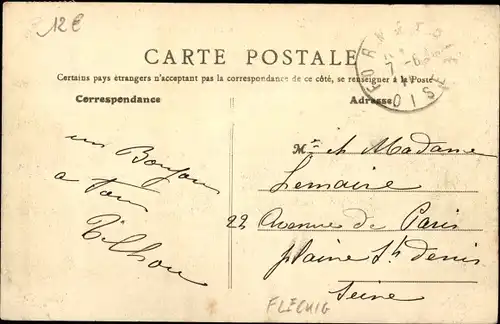 12€
CARTE POSTALE
Certains pays étrangers n'acceptent pas la correspondance de ce côté, se renseigner à la Poste
Correspondance
Adresse
OISE
un Bonjour
a tous
Tilhou
Mr et Madame
Lemaire
22 Avenue de Paris
plaine St denis
Seine
FLECHIG